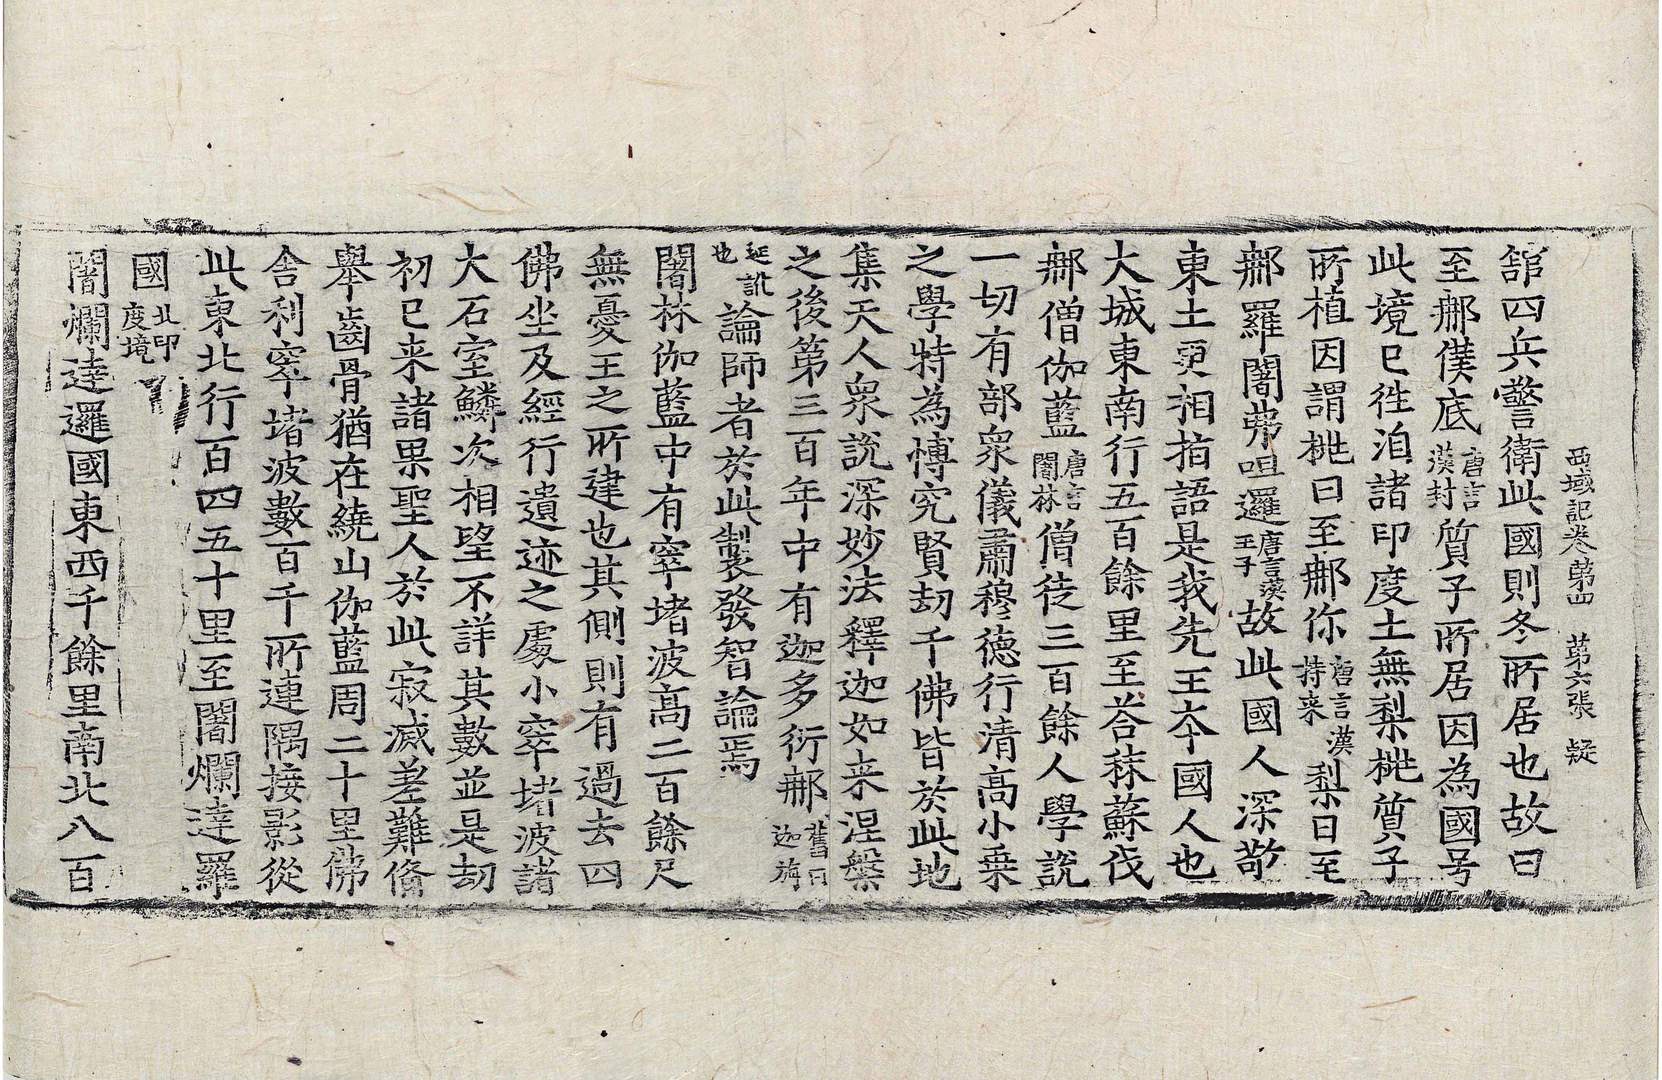 西域記卷第四　第六張　疑
舘四兵警衛此國則冬所居也故曰
至郍僕底唐言漢封質子所居因為國号
此境已徃洎諸印度土無梨桃質子
所植因謂桃曰至郍你唐言漢持来梨曰至
郍羅闍弗呾邏唐言漢王子故此國人深敬
東土更相指語是我先王夲國人也
大城東南行五百餘里至荅秣蘇伐
郍僧伽藍唐言闇林僧徒三百餘人學說
一切有部衆儀肅穆德行清高小乗
之學特為博究賢刧千佛皆於此地
集天人衆說深妙法釋迦如来涅槃
之後第三百年中有迦多衍郍舊曰迦旃
延訛也論師者於此製發智論焉
闇林伽藍中有窣堵波髙二百餘尺
無憂王之所建也其側則有過去四
佛坐及經行遺迹之處小窣堵波諸
大石室鱗次相望不詳其數並是刧
初已来諸果聖人於此寂滅差難俻
舉齒骨猶在繞山伽藍周二十里佛
舎利窣堵波數百千所連隅接影從
此東北行百四五十里至闍爛達羅
國北印度境
闍爛達邏國東西千餘里南北八百